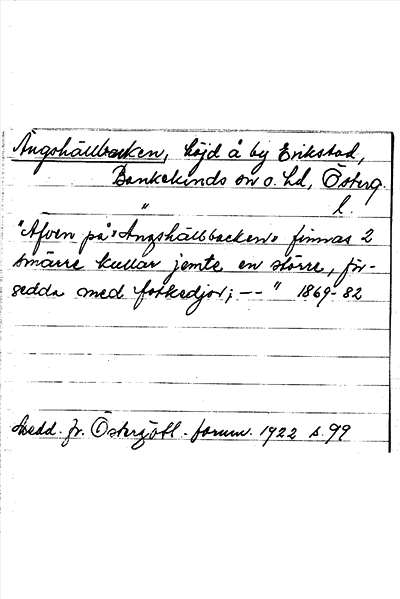 Ängshällbacken, höjd å by Erikstad,
Bankekinds sn o. hd, Österg.
" l.
"Äfven på "Ängshällbacken" finnas 2
smärre kullar jemte en större, för-
sedda med fotkedjor; -- " 1869-82
Medd. fr. Östergötl. fornm. 1922 s. 99